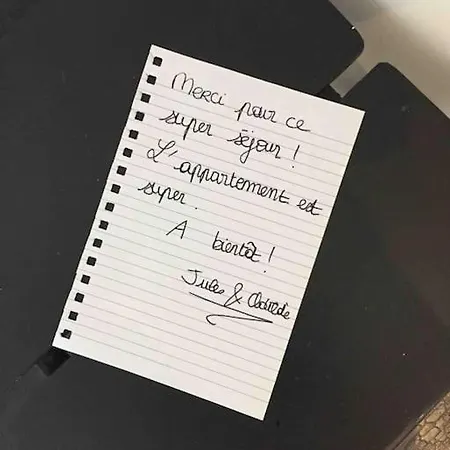 Merci pour ce
super séjour !
L'appartement est
super.
A bientôt !
Jules &